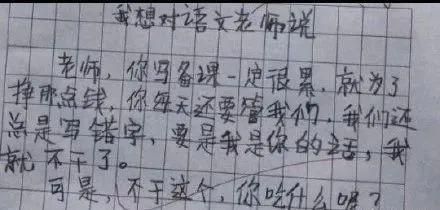 我想对语文老师说
老师，你写备课一定很累，就为了
挣那点钱，你每天还要管我们，我们还
总是写错字，要是我是你的话，我
就不干了。
可是，不干这个，你吃什么呢？